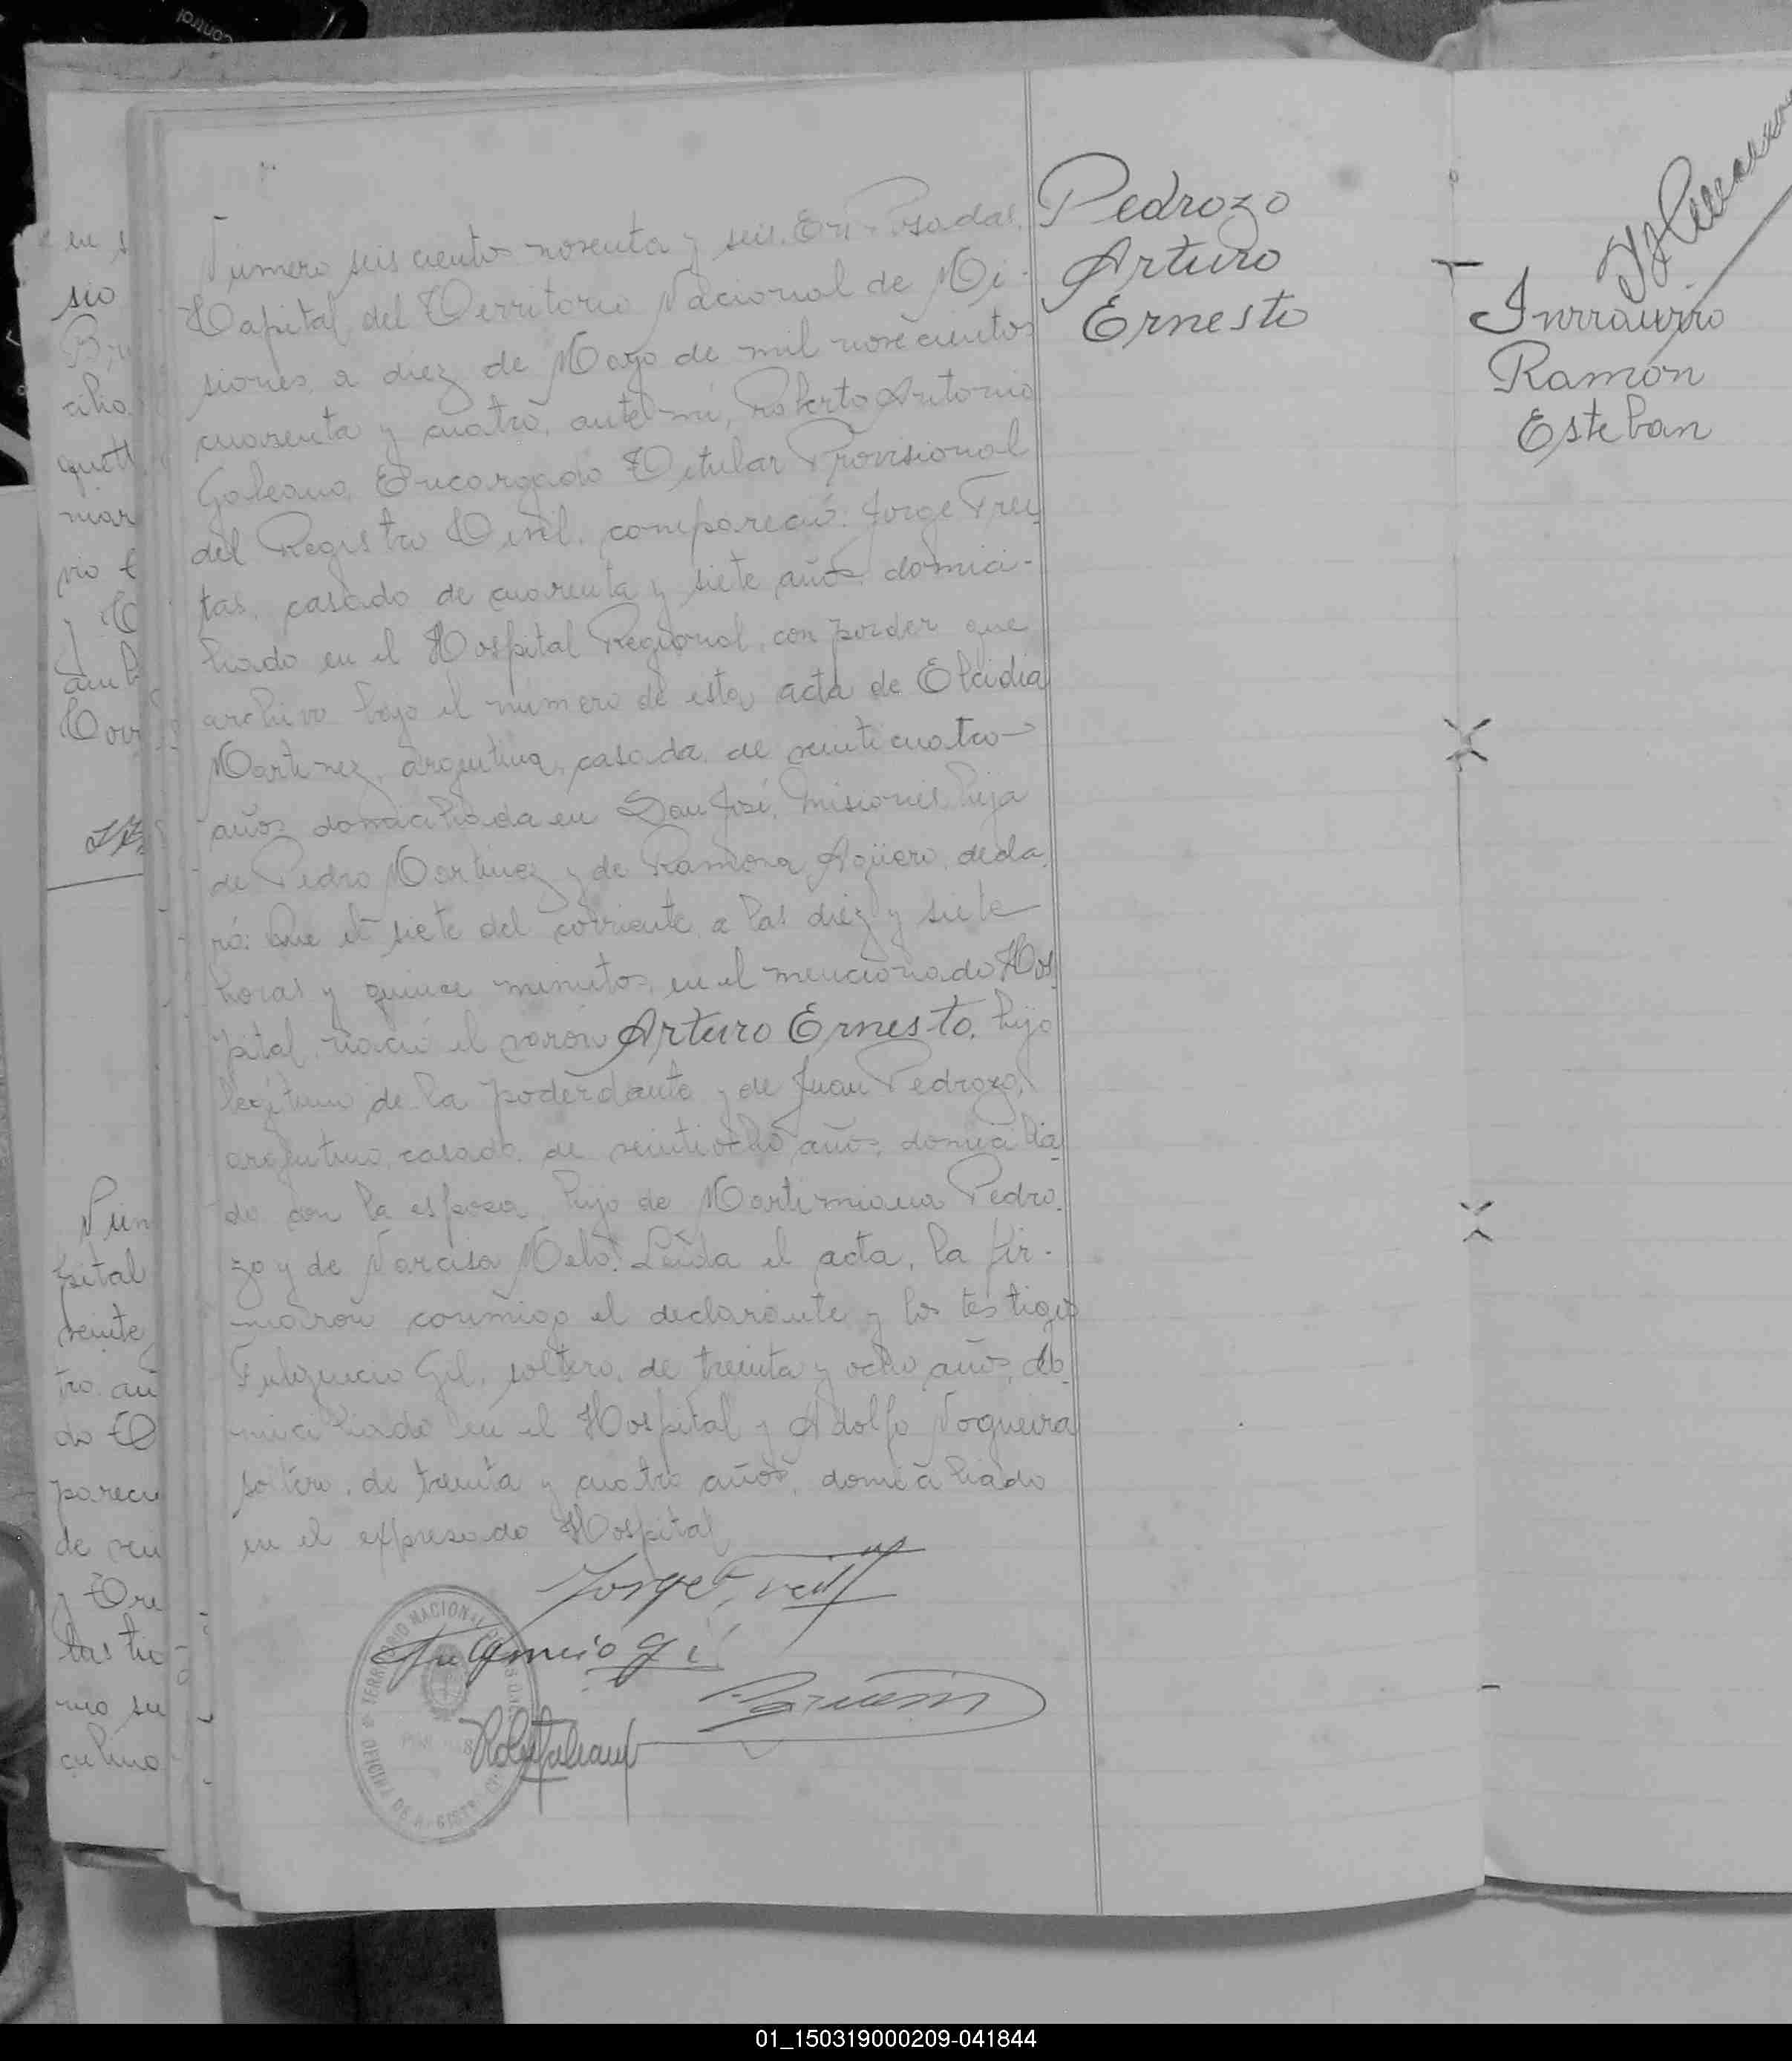 Número seis cientos noventa y seis. En Posadas,
Capital del Territorio Nacional de Mi-
siones, a diez de Mayo de mil novecientos
cuarenta y cuatro, ante mí, Roberto Antonio
Galeano, Encargado Titular Provisional
del Registro Civil, compareció: Jorge Frei-
tas, casado de cuarenta y siete años, domici-
liado en el Hospital Regional, con poder que
archivo bajo el número de esta acta de Elcidia
Martinez, argentina, casada, de veinticuatro
años domiciliada en San José, Misiones, hija
de Pedro Martinez y de Ramona Agüero, decla-
ró: Que el siete del corriente, a las diez y siete
horas y quince minutos, en el mencionado Hos-
pital, nació el varón Arturo Ernesto, hijo
legítimo de la poderdante y de Juan Pedrozo,
argentino, casado, de veintiocho años, domicilia-
do con la esposa, hijo de Martimiana Pedro-
zo y de Narcisa Melo. Leída el acta, la fir-
maron conmigo el declarante y los testigos
Fulgencio Gil, soltero, de treinta y ocho años, do-
miciliado en el Hospital y Adolfo Nogueira
soltero, de treinta y cuatro años, domiciliado
en el expresado Hospital
Jorge Freitas
Fulgencio Gi
TERRITORIO NACIONAL DE MISIONES
OFICINA DE REGISTRO CIVIL
Pedrozo
Arturo
Ernesto
Ramón
Esteban
en s
sio
cilio
mar
vio
Núm
pital
veinte
tro. añ
do C
parecu
de vein
las tre
mo su
culino
control
01_150319000209-041844